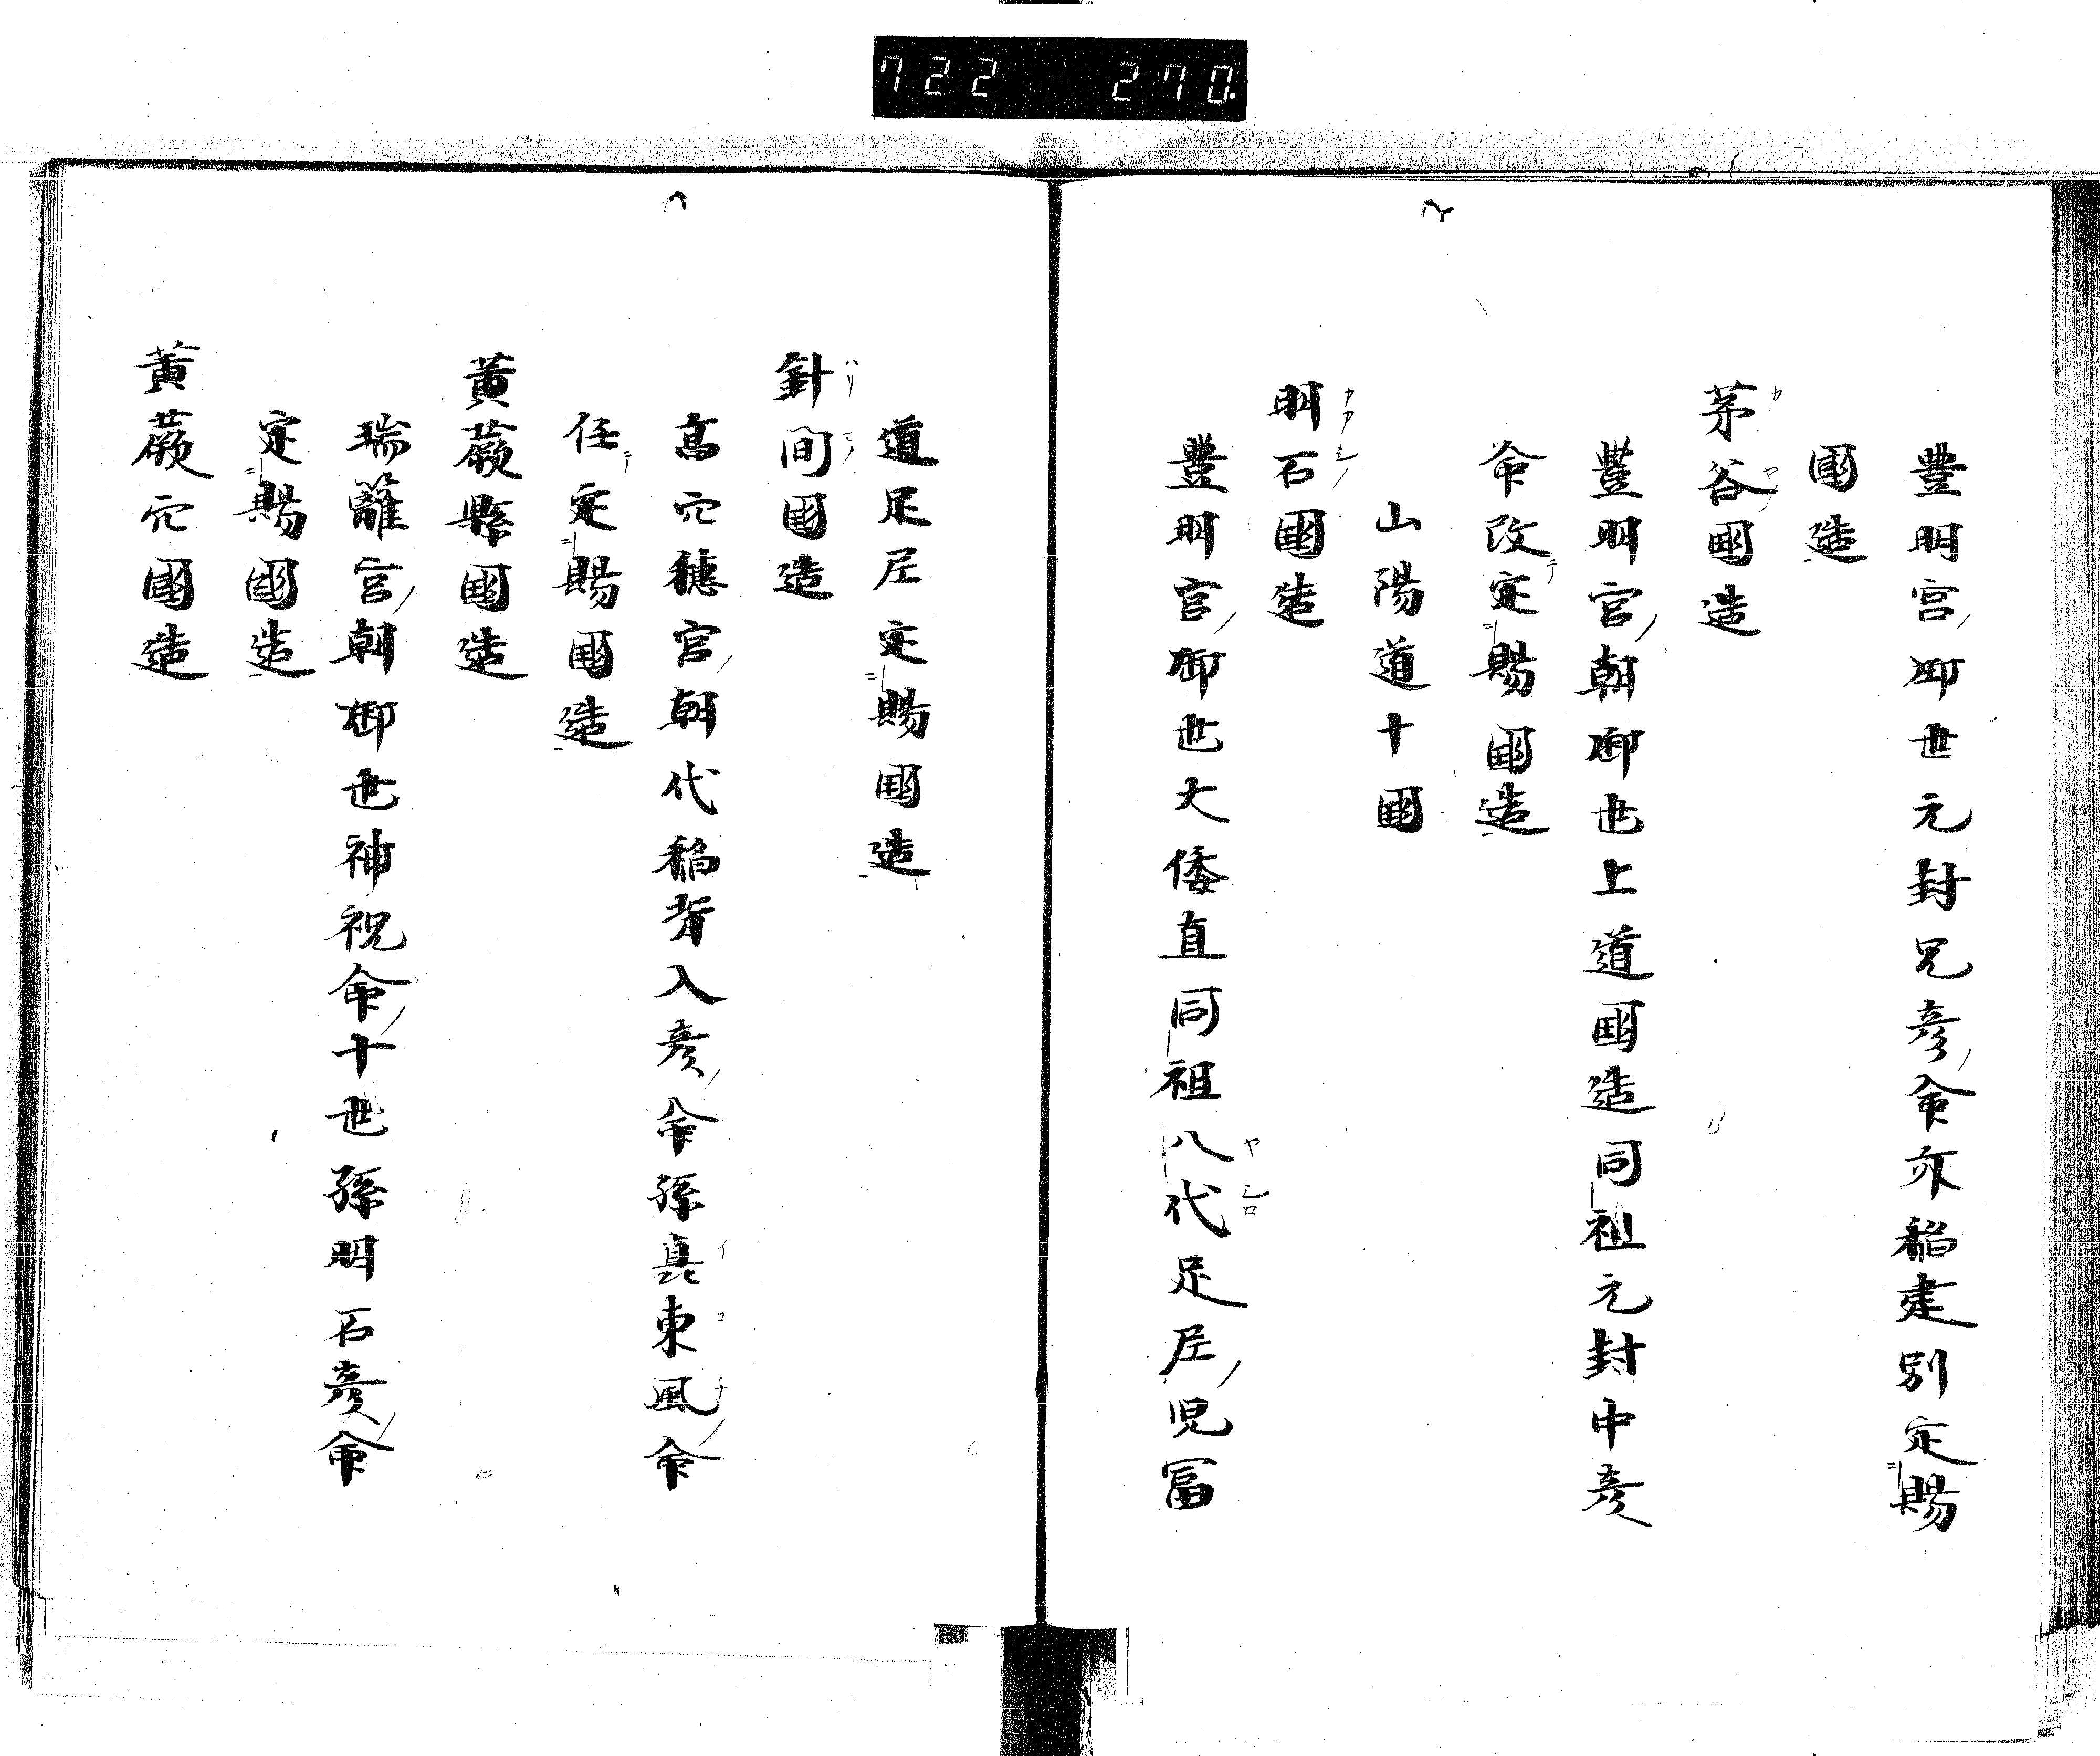 722 270.
豊明宮御世元封兄彦命亦稲建別定賜
國造
茅谷國造
豊明宮朝御世上道國造同祖元封中彦
命改定賜國造
山陽道十國
明石國造
豊明宮御世大倭直同祖八代足尼児冨
道足尼定賜國造
針間國造
髙穴穂宮朝代稲背入彦命孫真東風命
任定賜國造
黄蕨縣國造
瑞籬宮朝御世神祝命十世孫明石彦命
定賜國造
黄蕨穴國造